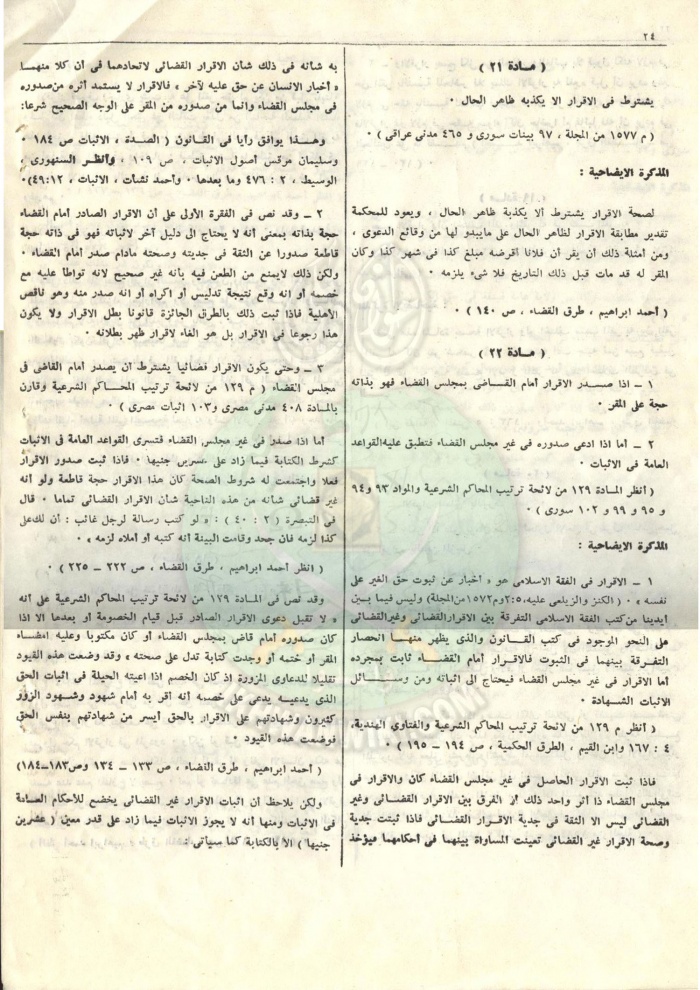 ٢٤
( مادة ٢١ )
يشترط فى الاقرار الا يكذبه ظاهر الحال ٠
( م ١٥٧٧ من المجلة ، ٩٧ بينات سورى و ٤٦٥ مدنى عراقى ) ٠
المذكرة الايضاحية :
لصحة الاقرار يشترط ألا يكذبة ظاهر الحال ، ويعود للمحكمة
تقدير مطابقة الاقرار لظاهر الحال على مايبدو لها من وقائع الدعوى ،
ومن أمثلة ذلك أن يقر أن فلانا أقرضه مبلغ كذا فى شهر كذا وكان
المقر له قد مات قبل ذلك التاريخ فلا شىء يلزمه ٠
( أحمد ابراهيم ، طرق القضاء ، ص ١٤٠ ) ٠
( مادة ٢٢ )
١ ــ اذا صـدر الاقرار أمام القاضى بمجلس القضاء فهو بذاته
حجة على المقر ٠
٢ ــ أما اذا ادعى صدوره فى غير مجلس القضاء فتطبق عليه القواعد
العامة فى الاثبات ٠
( أنظر المادة ١٢٩ من لائحة ترتيب المحاكم الشرعية والمواد ٩٣ و ٩٤
و ٩٥ و ٩٩ و ١٠٢ سورى ) ٠
المذكرة الايضاحية :
١ ــ الاقرار فى الفقة الاسلامى هو « أخبار عن ثبوت حق الغير على
نفسه » ٠ ( الكنز والزيلعى عليه، ٢:٥ و م ١٥٧٢ من المجلة ) وليس فيما بـين
أيدينا من كتب الفقة الاسلامى التفرقة بين الاقرار القضائى وغير القضائى
على النحو الموجود فى كتب القـانون والذى يظهر منهـا انحصار
التفرقة بينهما فى الثبوت فالاقرار أمام القضـاء ثابت بمجرده
أما الاقرار فى غير مجلس القضاء فيحتاج الى اثباته ومن وسـائل
الاثبات الشهـادة ٠
( أنظر م ١٢٩ من لائحة ترتيب المحاكم الشرعية والفتاوي الهندية،
٤ : ١٦٧ وابن القيم ، الطرق الحكمية ، ص ١٩٤ ــ ١٩٥ ) ٠
فاذا ثبت الاقرار الحاصل فى غير مجلس القضاء كان والاقرار فى
مجلس القضاء ذا أثر واحد ذلك أن الفرق بين الاقرار القضـائى وغير
القضائى ليس الا الثقة فى جدية الاقـرار القضـائى فاذا ثبتت جدية
وصحة الاقرار غير القضائى تعينت المساواة بينهما فى أحكامهما فيؤخذ
به شأنه فى ذلك شأن الاقرار القضائى لاتحادهما فى أن كلا منهمـا
« أخبار الانسان عن حق عليه لآخر » فالاقرار لا يستمد أثره من صدوره
فى مجلس القضاء وانما من صدوره من المقر على الوجه الصحيح شرعا:
وهـذا يوافق رأيا فى القانون ( الصدة ، الاثبات ص ١٨٤ ٠
وسليمان مرقس أصول الاثبات ، ص ١٠٩ ، وأنظر السنهورى ،
الوسيط ، ٢ : ٤٧٦ وما بعدها ٠ وأحمد نشأت ، الاثبات ، ٤٩:١٢)٠
٢ ــ وقد نص فى الفقرة الأولى على أن الاقرار الصادر أمام القضاء
حجة بذاته بمعنى أنه لا يحتاج الى دليل آخر لاثباته فهو فى ذاته حجة
قاطعة صدورا عن الثقة فى جديته وصحته مادام صدر أمام القضاء ٠
ولكن ذلك لايمنع من الطعن فيه بأنه غير صحيح لانه تواطأ عليه مع
خصمه أو انه وقع نتيجة تدليس أو اكراه أو انه صدر منه وهو ناقص
الأهلية فاذا ثبت ذلك بالطرق الجائزة قانونا بطل الاقرار ولا يكون
هذا رجوعا فى الاقرار بل هو الغاء لاقرار ظهر بطلانه ٠
٣ ــ وحتى يكون الاقرار قضائيا يشترط أن يصدر أمام القاضى فى
مجلس القضاء ( م ١٢٩ من لائحة ترتيب المحـاكم الشرعية وقارن
بالمـادة ٤٠٨ مدنى مصرى و ١٠٣ اثبات مصرى ) ٠
أما اذا صدر فى غير مجلس القضاء فتسرى القواعد العامة فى الاثبات
كشرط الكتابة فيما زاد على عشرين جنيها ٠ فاذا ثبت صدور الاقرار
فعلا واجتمعت له شروط الصحة كان هذا الاقرار حجة قاطعة ولو أنه
غير قضائى شأنه من هذه الناحية شأن الاقرار القضائى تماما ٠ قال
فى التبصرة ( ٢ : ٤٠ ) : « لو كتب رسالة لرجل غائب : أن لك على
كذا لزمه فان جحد وقامت البينة أنه كتبه أو أملاه لزمه » ٠
( انظر أحمد ابراهيم ، طرق القضاء ، ص ٢٢٢ ــ ٢٢٥ ) ٠
وقد نص فى المـادة ١٢٩ من لائحة ترتيب المحاكم الشرعية على أنه
« لا تقبل دعوى الاقرار الصادر قبل قيام الخصومة أو بعدها الا اذا
كان صدوره أمام قاض بمجلس القضاء أو كان مكتوبا وعليه امضـاء
المقر أو ختمه أو وجدت كتابة تدل على صحته » وقد وضعت هذه القيود
تقليلا للدعاوى المزورة اذ كان الخصم اذا اعيته الحيلة فى اثبات الحق
الذى يدعيـه يدعى على خصمه أنه أقر به أمام شهود وشهـود الزور
كثيرون وشهادتهم على الاقرار بالحق أيسر من شهادتهم بنفس الحق
فوضعت هذه القيود ٠
( أحمد ابراهيم ، طرق القضاء ، ص ١٣٣ ــ ١٣٤ وص ١٨٣ــ١٨٤)
ولكن يلاحظ أن اثبات الاقرار غير القضائى يخضع للأحكام العـامة
فى الاثبات ومنها أنه لا يجوز الاثبات فيما زاد على قدر معين ( عشرين
جنيها ) الا بالكتابة كما سيأتى :